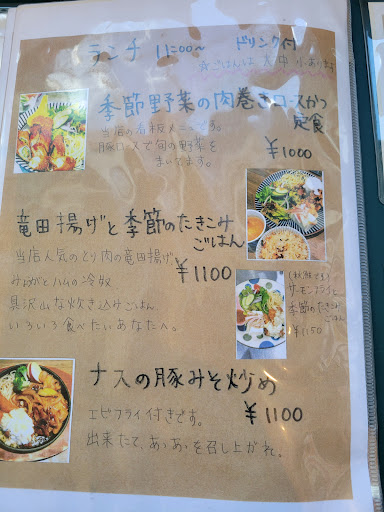 ランチ 11:00～ ドリンク付
※ごはんは 大 中 小あります
季節野菜の肉巻きロースかつ
定食
当店の看板メニューです。
豚ロースで旬の野菜を
まいてます。
¥1000
竜田揚げと季節のたきこみ
ごはん
当店人気のとり肉の竜田揚げ
みょうがとハムの冷奴
具沢山な炊き込みごはん
いろいろ食べたいあなたへ。
¥1100
サーモンフライと
季節のたきこみ
ごはん
¥1150
ナスの豚みそ炒め
エビフライ付きです。
¥1100
出来たて、あつあつを召し上がれ。